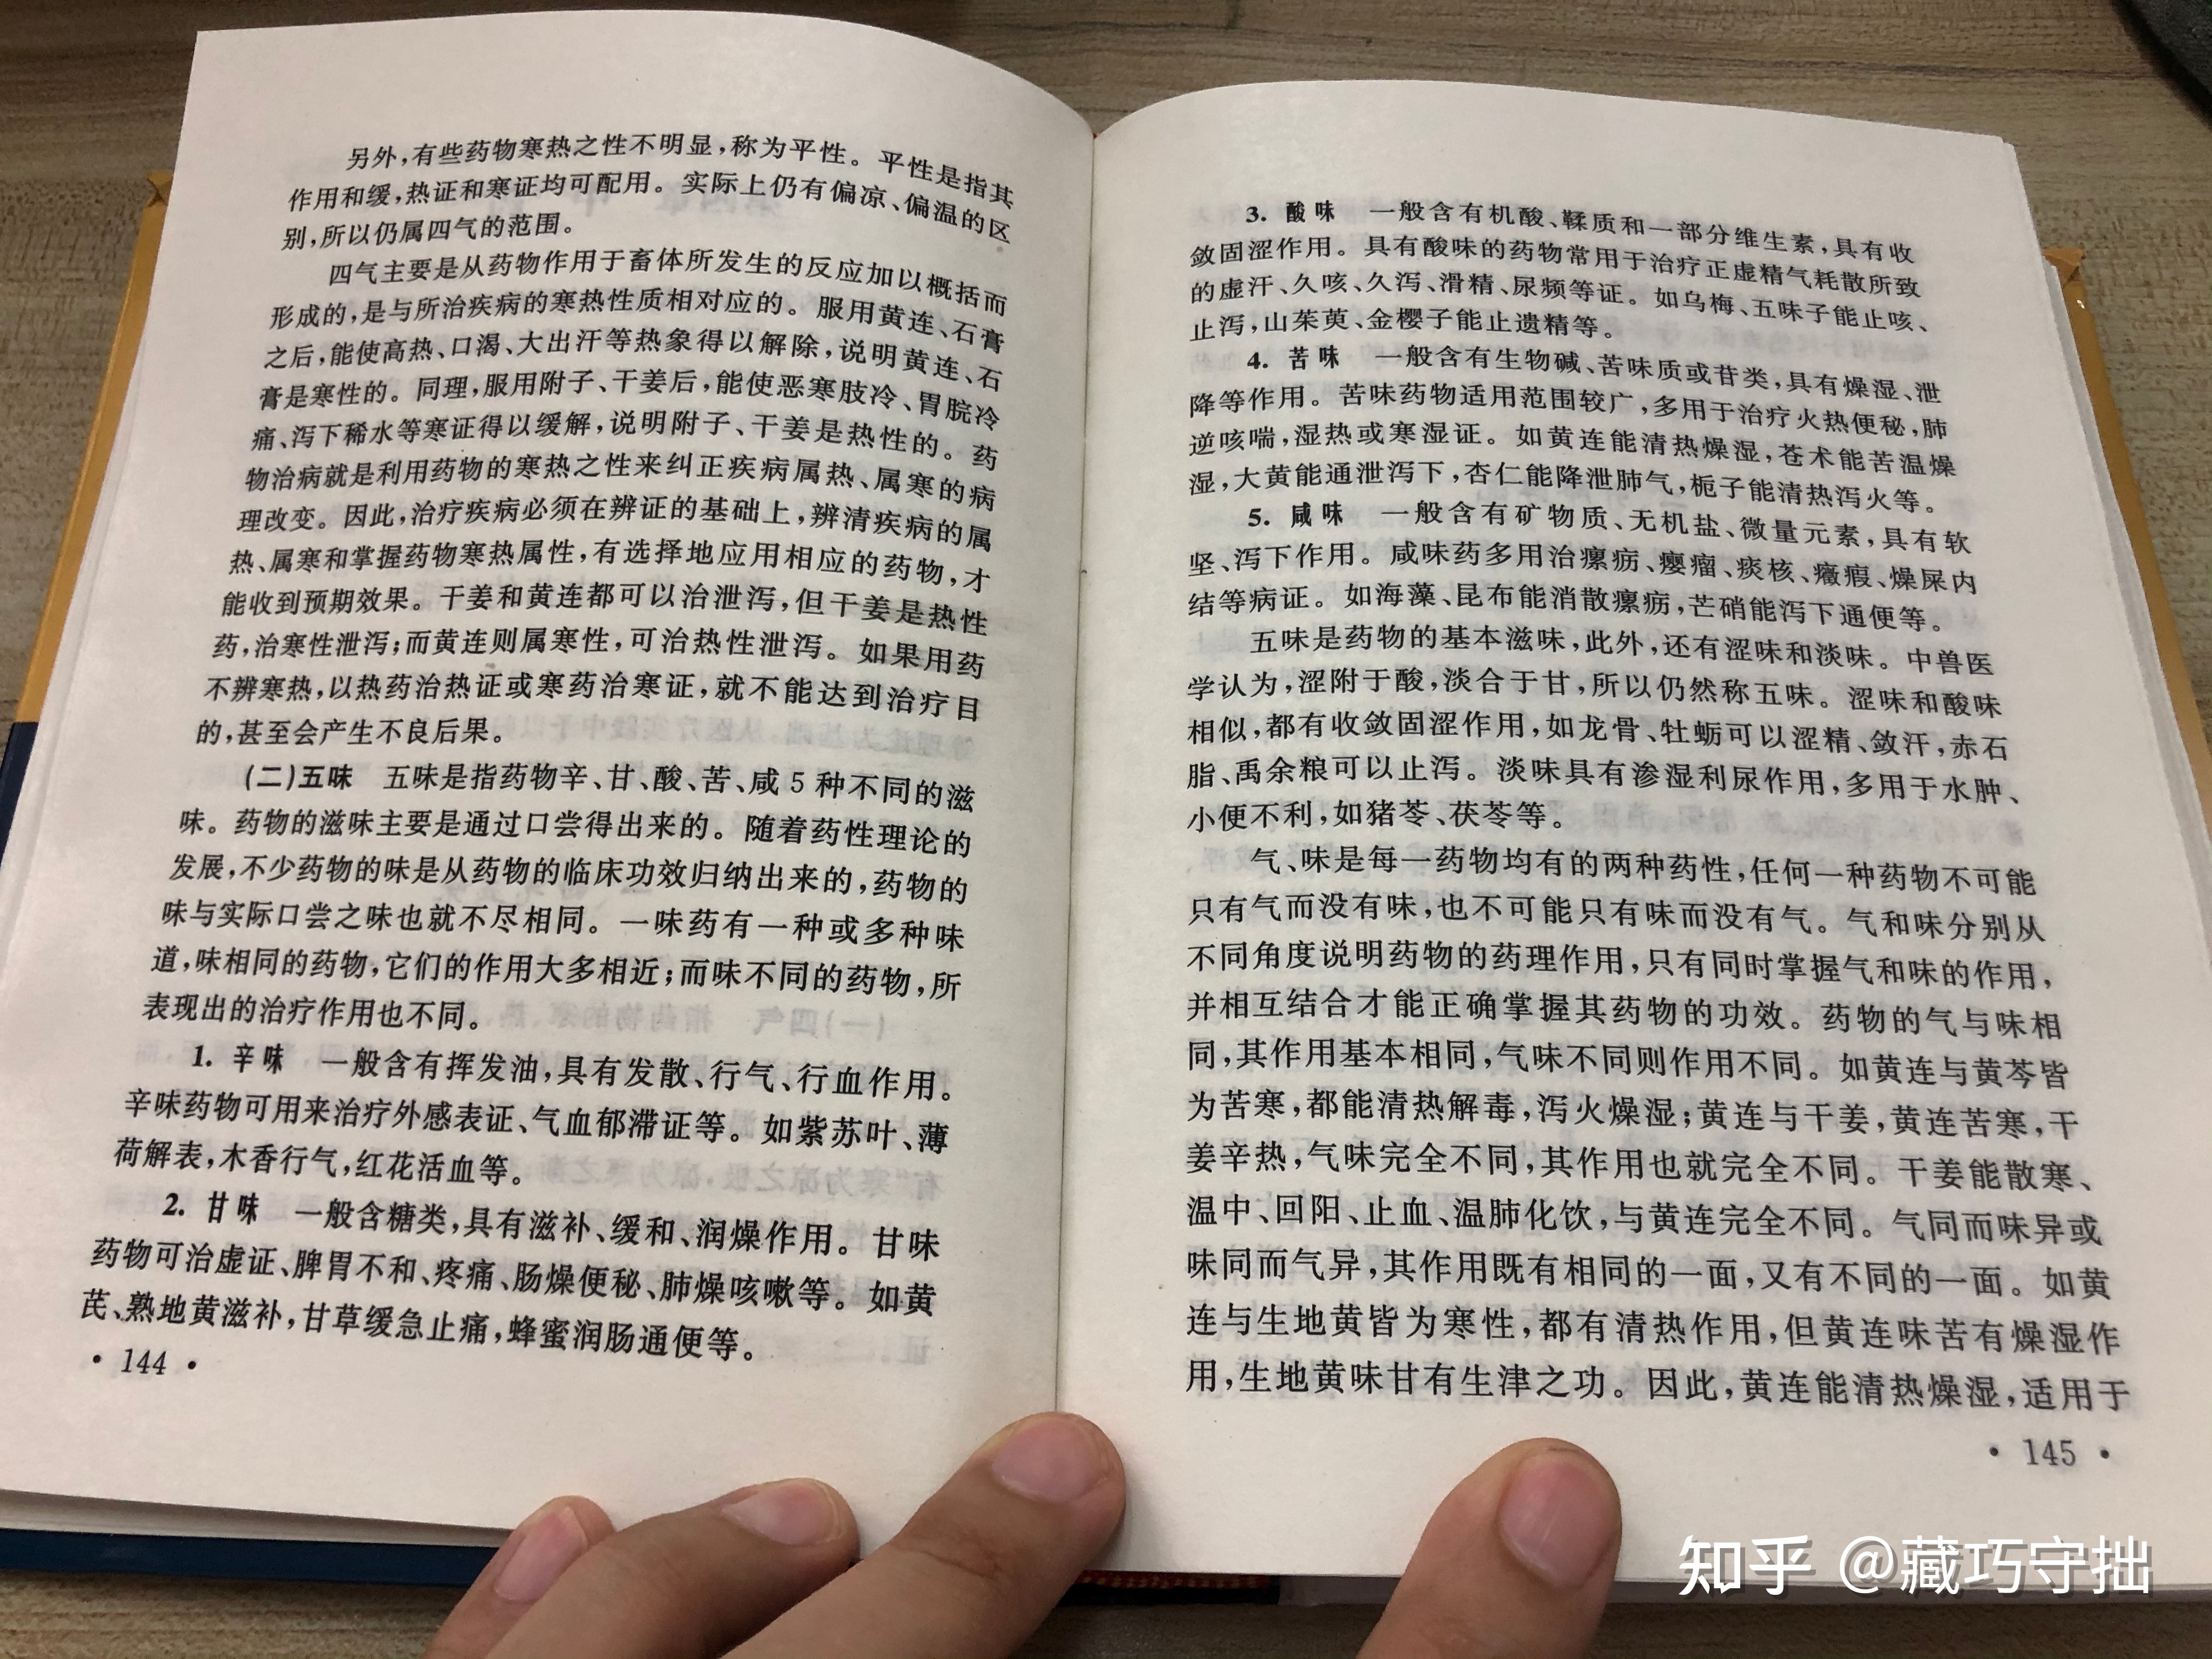 另外,有些药物寒热之性不明显,称为平性。平性是指其
作用和缓,热证和寒证均可配用。实际上仍有偏凉、偏温的区
别,所以仍属四气的范围。
四气主要是从药物作用于畜体所发生的反应加以概括而
形成的,是与所治疾病的寒热性质相对应的。服用黄连、石膏
之后,能使高热、口渴、大出汗等热象得以解除,说明黄连、石
膏是寒性的。同理,服用附子、干姜后,能使恶寒肢冷、胃脘冷
痛、泻下稀水等寒证得以缓解,说明附子、干姜是热性的。药
物治病就是利用药物的寒热之性来纠正疾病属热、属寒的病
理改变。因此,治疗疾病必须在辨证的基础上,辨清疾病的属
热、属寒和掌握药物寒热属性,有选择地应用相应的药物,才
能收到预期效果。干姜和黄连都可以治泄泻,但干姜是热性
药,治寒性泄泻;而黄连则属寒性,可治热性泄泻。如果用药
不辨寒热,以热药治热证或寒药治寒证,就不能达到治疗目
的,甚至会产生不良后果。
(二)五味 五味是指药物辛、甘、酸、苦、咸5种不同的滋
味。药物的滋味主要是通过口尝得出来的。随着药性理论的
发展,不少药物的味是从药物的临床功效归纳出来的,药物的
味与实际口尝之味也就不尽相同。一味药有一种或多种味
道,味相同的药物,它们的作用大多相近;而味不同的药物,所
表现出的治疗作用也不同。
1. 辛味 一般含有挥发油,具有发散、行气、行血作用。
辛味药物可用来治疗外感表证、气血郁滞证等。如紫苏叶、薄
荷解表,木香行气,红花活血等。
2. 甘味 一般含糖类,具有滋补、缓和、润燥作用。甘味
药物可治虚证、脾胃不和、疼痛、肠燥便秘、肺燥咳嗽等。如黄
芪、熟地黄滋补,甘草缓急止痛,蜂蜜润肠通便等。
· 144 ·
3. 酸味 一般含有机酸、鞣质和一部分维生素,具有收
敛固涩作用。具有酸味的药物常用于治疗正虚精气耗散所致
的虚汗、久咳、久泻、滑精、尿频等证。如乌梅、五味子能止咳、
止泻,山茱萸、金樱子能止遗精等。
4. 苦味 一般含有生物碱、苦味质或苷类,具有燥湿、泄
降等作用。苦味药物适用范围较广,多用于治疗火热便秘,肺
逆咳喘,湿热或寒湿证。如黄连能清热燥湿,苍术能苦温燥
湿,大黄能通泄泻下,杏仁能降泄肺气,栀子能清热泻火等。
5. 咸味 一般含有矿物质、无机盐、微量元素,具有软
坚、泻下作用。咸味药多用治瘰疬、瘿瘤、痰核、癥瘕、燥屎内
结等病证。如海藻、昆布能消散瘰疬,芒硝能泻下通便等。
五味是药物的基本滋味,此外,还有涩味和淡味。中兽医
学认为,涩附于酸,淡合于甘,所以仍然称五味。涩味和酸味
相似,都有收敛固涩作用,如龙骨、牡蛎可以涩精、敛汗,赤石
脂、禹余粮可以止泻。淡味具有渗湿利尿作用,多用于水肿、
小便不利,如猪苓、茯苓等。
气、味是每一药物均有的两种药性,任何一种药物不可能
只有气而没有味,也不可能只有味而没有气。气和味分别从
不同角度说明药物的药理作用,只有同时掌握气和味的作用,
并相互结合才能正确掌握其药物的功效。药物的气与味相
同,其作用基本相同,气味不同则作用不同。如黄连与黄芩皆
为苦寒,都能清热解毒,泻火燥湿;黄连与干姜,黄连苦寒,干
姜辛热,气味完全不同,其作用也就完全不同。干姜能散寒、
温中、回阳、止血、温肺化饮,与黄连完全不同。气同而味异或
味同而气异,其作用既有相同的一面,又有不同的一面。如黄
连与生地黄皆为寒性,都有清热作用,但黄连味苦有燥湿作
用,生地黄味甘有生津之功。因此,黄连能清热燥湿,适用于
· 145 ·
知乎 @藏巧守拙